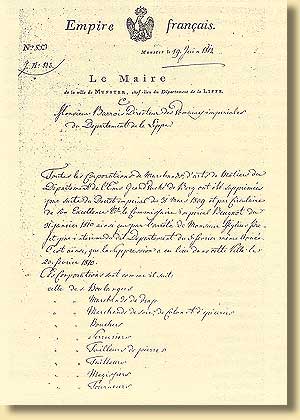 Empire français.
Nº 80
Munster le 19 Juin 1812
Le Maire
de la ville de MUNSTER, chef-lieu du Département de la LIPPE.
Monsieur Barrois Directeur des Domaines imperiales
du Departement de la Lippe
Toutes les Corporations de Marchands, d'arts & Metiers du
Département de l'Ems Gr. Duché de Berg ont été supprimées
par suite du Decret imperial du 31 Mars 1809 et par Circulaire
de Son Excellence le Commissaire imperial Beugnot du
31 janvier 1810 ainsi que par l'arrêté de Monsieur
du Département du 5 fevrier même Année.
C'est ainsi, que la suppression a eu lieu dans cette Ville le
20. fevrier 1810.
Ces Corporations sont comme il suit:
celle des Boulangers
" Marchands de draps
" Marchands de d'épiceries
" Bouchers
" Serruriers
" Tailleurs de pierres
" Tailleurs
" Megissiers
" Tourneurs